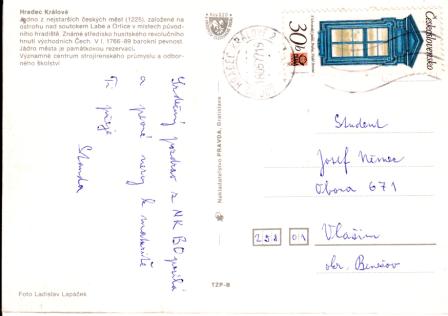 Hradec Králové
Jedno z nejstarších českých měst (1225), založené na
ostrohu nad soutokem Labe a Orlice v místech původu-
ního hradiště. Známé středisko husitského revolučního
hnutí východních Čech. V l. 1766-89 barokní pevnost.
Jádro města je památkovou rezervací.
Významné centrum strojírenského průmyslu a odbor-
ného školství
Srdečný pozdrav z NK BO posílá
a pevné nervy k maturitě
Ti přeje
Standa
Foto Ladislav Lapáček
Nakladatelství PRAVDA, Bratislava
TZP-B
30h
Československo
Student
Josef Němec
Obora 671
258 01
Vlašim
okr. Benešov